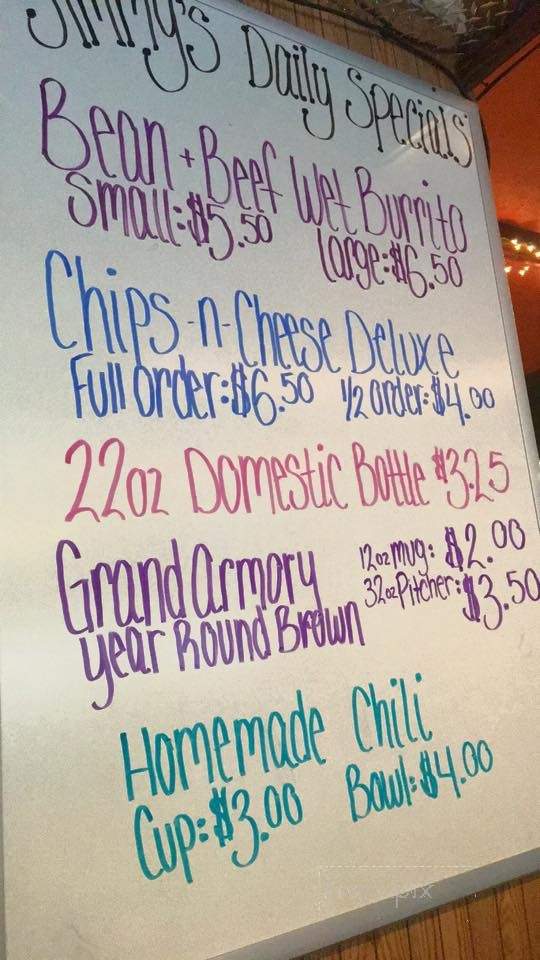 Jimmy's Daily Specials
Bean + Beef Wet Burrito
Small: $5.50 Large: $6.50
Chips-n-Cheese Deluxe
Full Order: $6.50 1/2 order: $4.00
22oz Domestic Bottle $3.25
Grand Armory 12oz mug: $2.00
32oz Pitcher: $3.50
Year Round Brown
Homemade Chili
Cup: $3.00 Bowl: $4.00